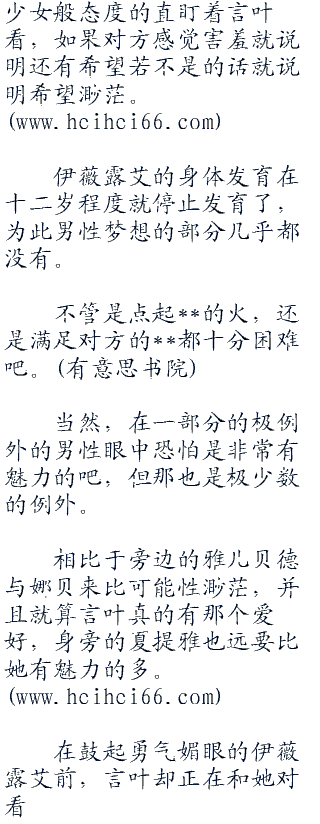 少女般态度的直盯着言叶
看，如果对方感觉害羞就说
明还有希望若不是的话就说
明希望渺茫。
(www.hcihci66.com)
伊薇露艾的身体发育在
十二岁程度就停止发育了，
为此男性梦想的部分几乎都
没有。
不管是点起**的火，还
是满足对方的**都十分困难
吧。(有意思书院)
当然，在一部分的极例
外的男性眼中恐怕是非常有
魅力的吧，但那也是极少数
的例外。
相比于旁边的雅儿贝德
与娜贝来比可能性渺茫，并
且就算言叶真的有那个爱
好，身旁的夏提雅也远要比
她有魅力的多。
(www.hcihci66.com)
在鼓起勇气媚眼的伊薇
露艾前，言叶却正在和她对
看